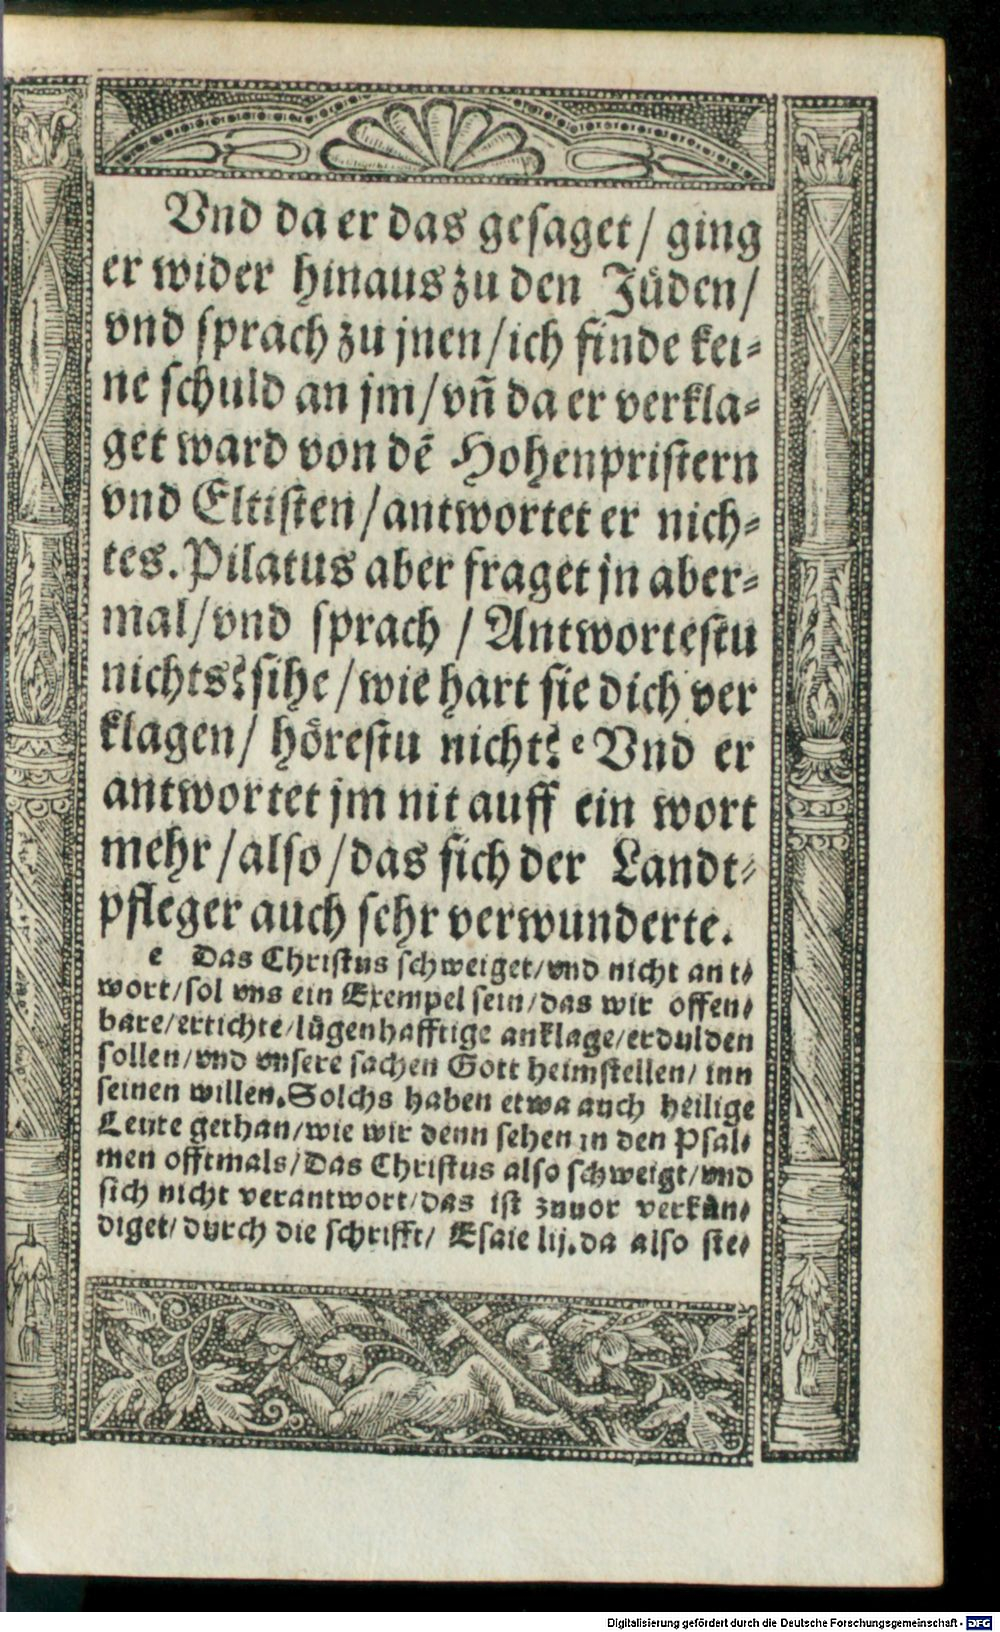 Vnd da er das gesaget / ging
er wider hinaus zu den Jüden /
vnd sprach zu jnen / ich finde kei⸗
ne schuld an jm / vñ da er verkla⸗
get ward von dẽ Hohenpristern
vnd Eltisten / antwortet er nich⸗
tes. Pilatus aber fraget jn aber⸗
mal / vnd sprach / Antwortestu
nichts? sihe / wie hart sie dich ver
klagen / hörestu nicht? e Vnd er
antwortet jm nit auff ein wort
mehr / also / das sich der Landt⸗
pfleger auch sehr verwunderte.
e Das Christus schweiget / vnd nicht ant⸗
wort / sol vns ein Exempel sein / das wir offen⸗
bare / ertichte / lügenhafftige anklage / erdulden
sollen / vnd vnsere sachen Gott heimstellen / inn
seinen willen. Solchs haben etwa auch heilige
Leute gethan / wie wir denn sehen in den Psal⸗
men offtmals / Das Christus also schweigt / vnd
sich nicht verantwort / das ist zuuor verkün⸗
diget / durch die schrifft / Esaie lij. da also ste⸗
Digitalisierung gefördert durch die Deutsche Forschungsgemeinschaft - DFG